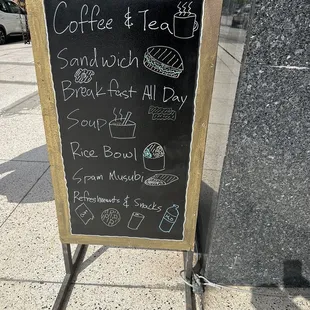 Coffee & Tea
Sandwich
Breakfast All Day
Soup
Rice Bowl
Spam Musubi
Refreshments & Snacks